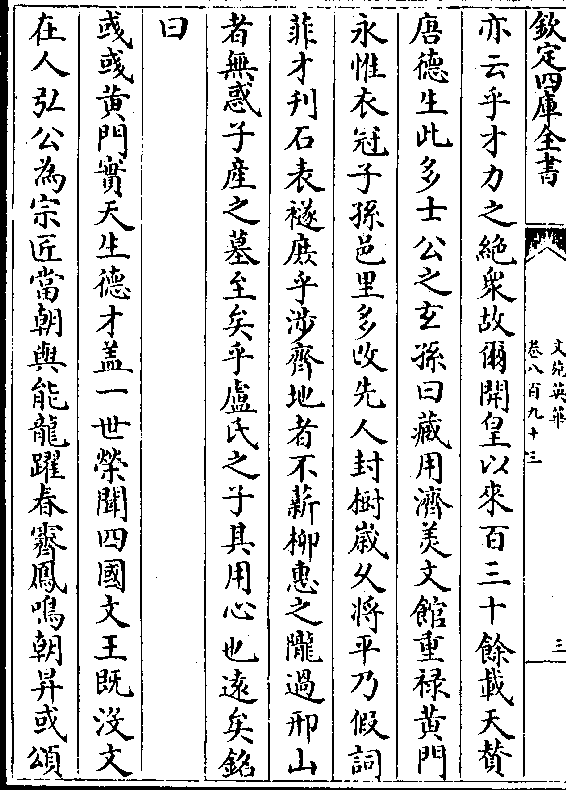 欽定四庫全書
文苑英華
卷八百九十三
三
亦云乎才力之絶衆故爾開皇以來百三十餘載天賛
唐德生此多士公之玄孫曰藏用濟美文館重禄黄門
永惟衣冠子孫邑里多攺先人封樹歳乆將平乃假詞
菲才刋石表襚庻乎涉齊地者不薪柳惠之隴過邢山
者無惑子産之墓至矣乎盧氏之子其用心也逺矣銘
曰
彧彧黄門實天生德才盖一世榮聞四國文王既沒文
在人弘公為宗匠當朝與能龍躍春霽鳳鳴朝昇或頌